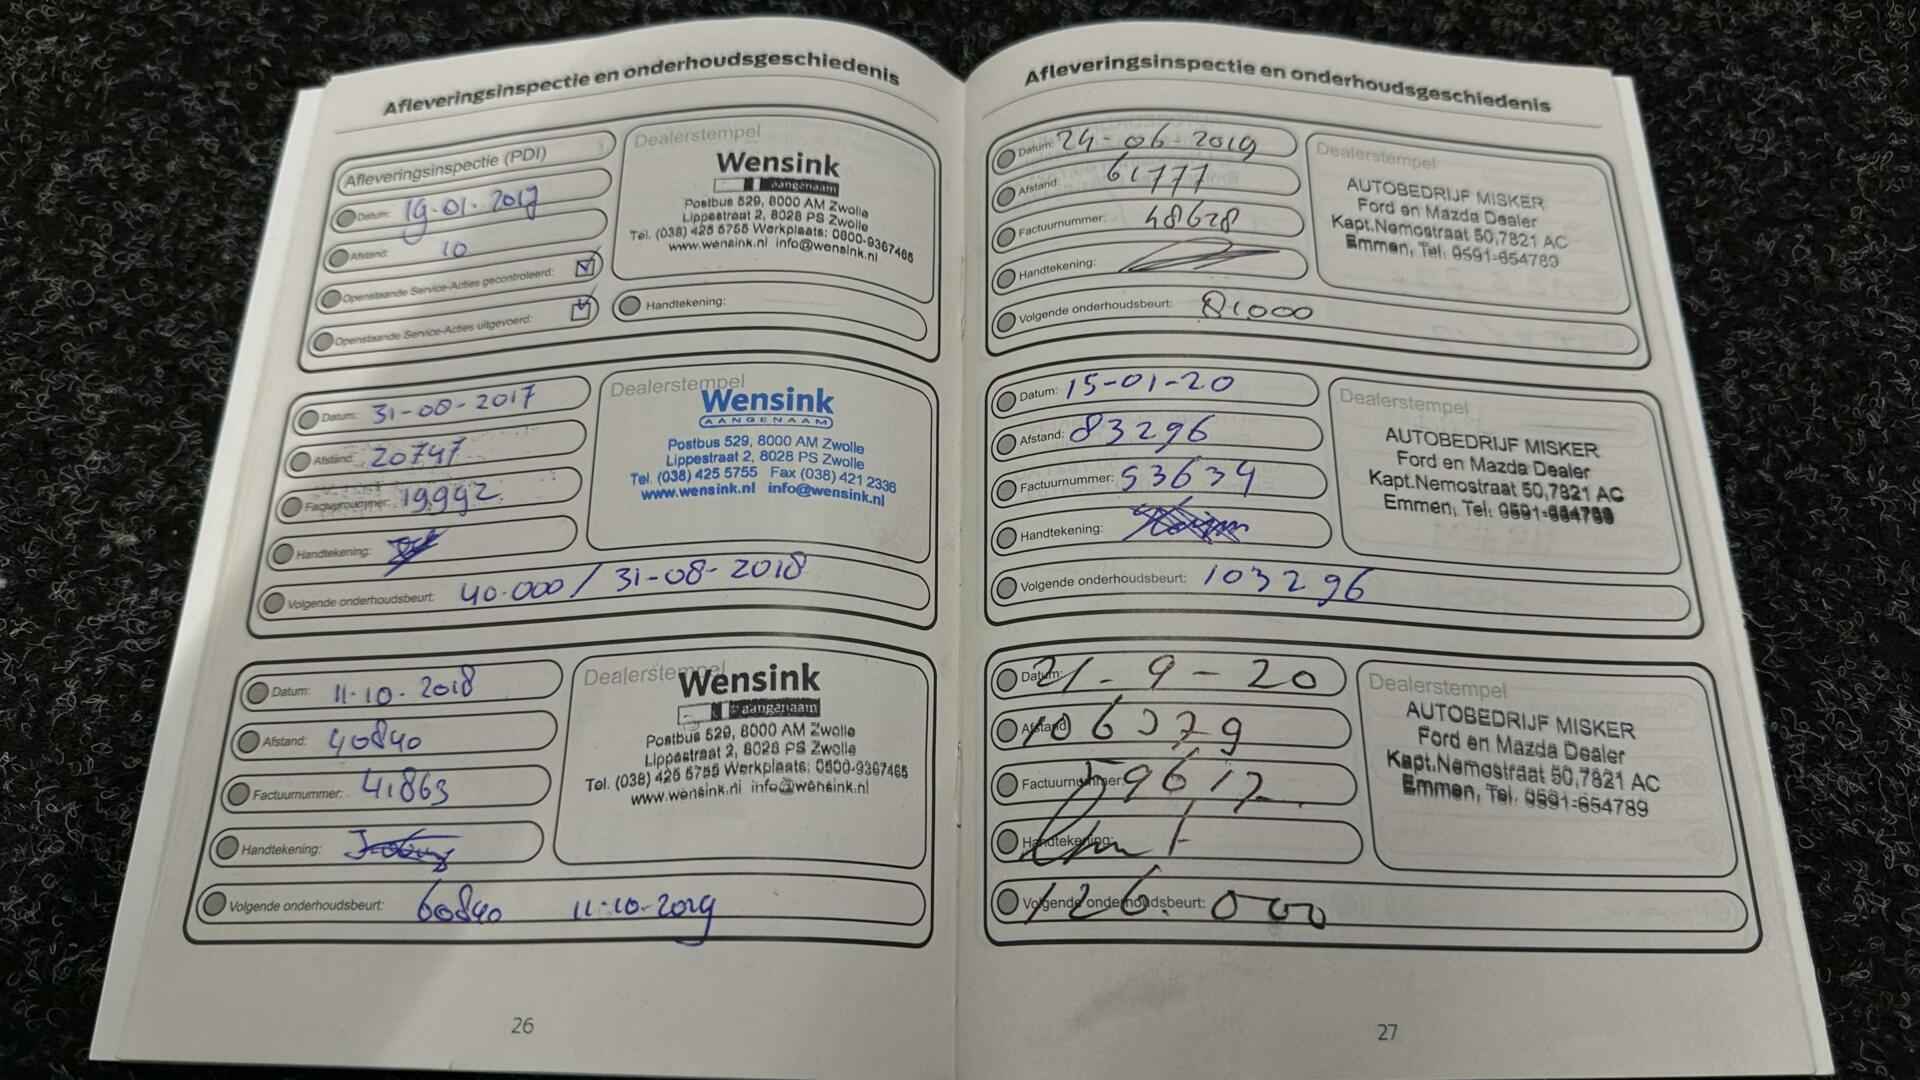 Afleveringsinspectie en onderhoudsgeschiedenis
Afleveringsinspectie (PDI)
Datum: 19-01-2017
Afstand: 10
Openstaande Service-Acties gecontroleerd:
Openstaande Service-Acties uitgevoerd:
Dealerstempel
Wensink
aangenaam
Postbus 529, 8000 AM Zwolle
Lippestraat 2, 8028 PS Zwolle
Tel. (038) 425 5755 Werkplaats: 0800-9367465
www.wensink.nl info@wensink.nl
Handtekening:
Datum: 31-08-2017
Afstand: 20747
Factuurnummer: 19992
Handtekening:
Volgende onderhoudsbeurt: 40.000 / 31-08-2018
Dealerstempel
Wensink
AANGENAAM
Postbus 529, 8000 AM Zwolle
Lippestraat 2, 8028 PS Zwolle
Tel. (038) 425 5755 Fax (038) 421 2336
www.wensink.nl info@wensink.nl
Datum: 11-10-2018
Afstand: 40840
Factuurnummer: 41863
Handtekening:
Volgende onderhoudsbeurt: 60840 11-10-2019
Dealerstempel
Wensink
aangenaam
Postbus 529, 8000 AM Zwolle
Lippestraat 2, 8028 PS Zwolle
Tel. (038) 425 5755 Werkplaats: 0800-9367465
www.wensink.nl info@wensink.nl
26
Afleveringsinspectie en onderhoudsgeschiedenis
Datum: 24-06-2019
Afstand: 61777
Factuurnummer: 48628
Handtekening:
Volgende onderhoudsbeurt: 81000
Dealerstempel
AUTOBEDRIJF MISKER
Ford en Mazda Dealer
Kapt.Nemostraat 50,7821 AC
Emmen, Tel: 0591-654789
Datum: 15-01-20
Afstand: 83296
Factuurnummer: 53634
Handtekening:
Volgende onderhoudsbeurt: 103296
Dealerstempel
AUTOBEDRIJF MISKER
Ford en Mazda Dealer
Kapt.Nemostraat 50,7821 AC
Emmen, Tel: 0591-654789
Datum: 21-9-20
Afstand: 106379
Factuurnummer: 59612
Handtekening:
Volgende onderhoudsbeurt: 126.000
Dealerstempel
AUTOBEDRIJF MISKER
Ford en Mazda Dealer
Kapt.Nemostraat 50,7821 AC
Emmen, Tel. 0591-654789
27